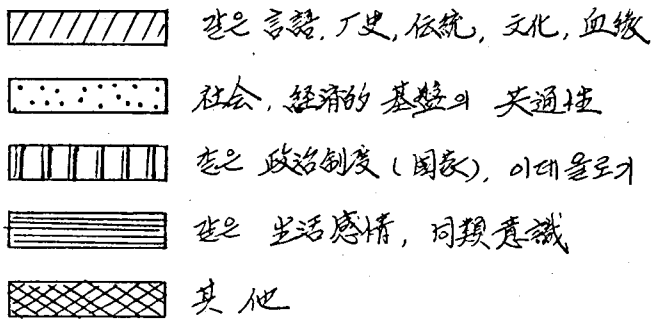 같은 言語, 厂史, 伝統, 文化, 血緣
社会, 経済的 基盤의 共通性
같은 政治制度 (国家), 이데올로기
같은 生活感情, 同類意識
其他